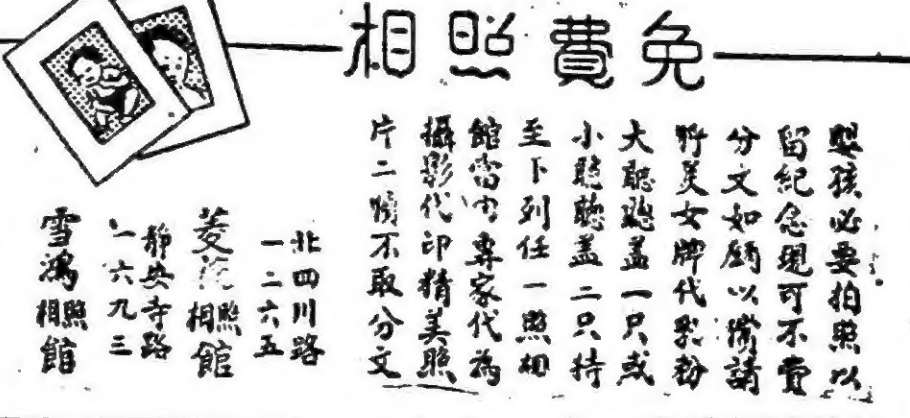 免費照相
嬰孩必要拍照以
留紀念現可不費
分文如願以償請
將美女牌代乳粉
大聽聽蓋一只或
小聽聽蓋二只持
至下列任一照相
館當由專家代為
攝影代印精美照
片二幀不取分文
北四川路
一二六五
菱花照相館
靜安寺路
一六九三
雪鴻照相館